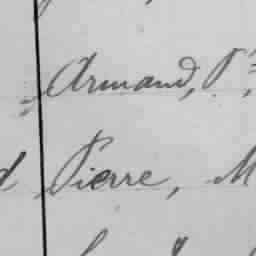 Armand,
Pierre, M